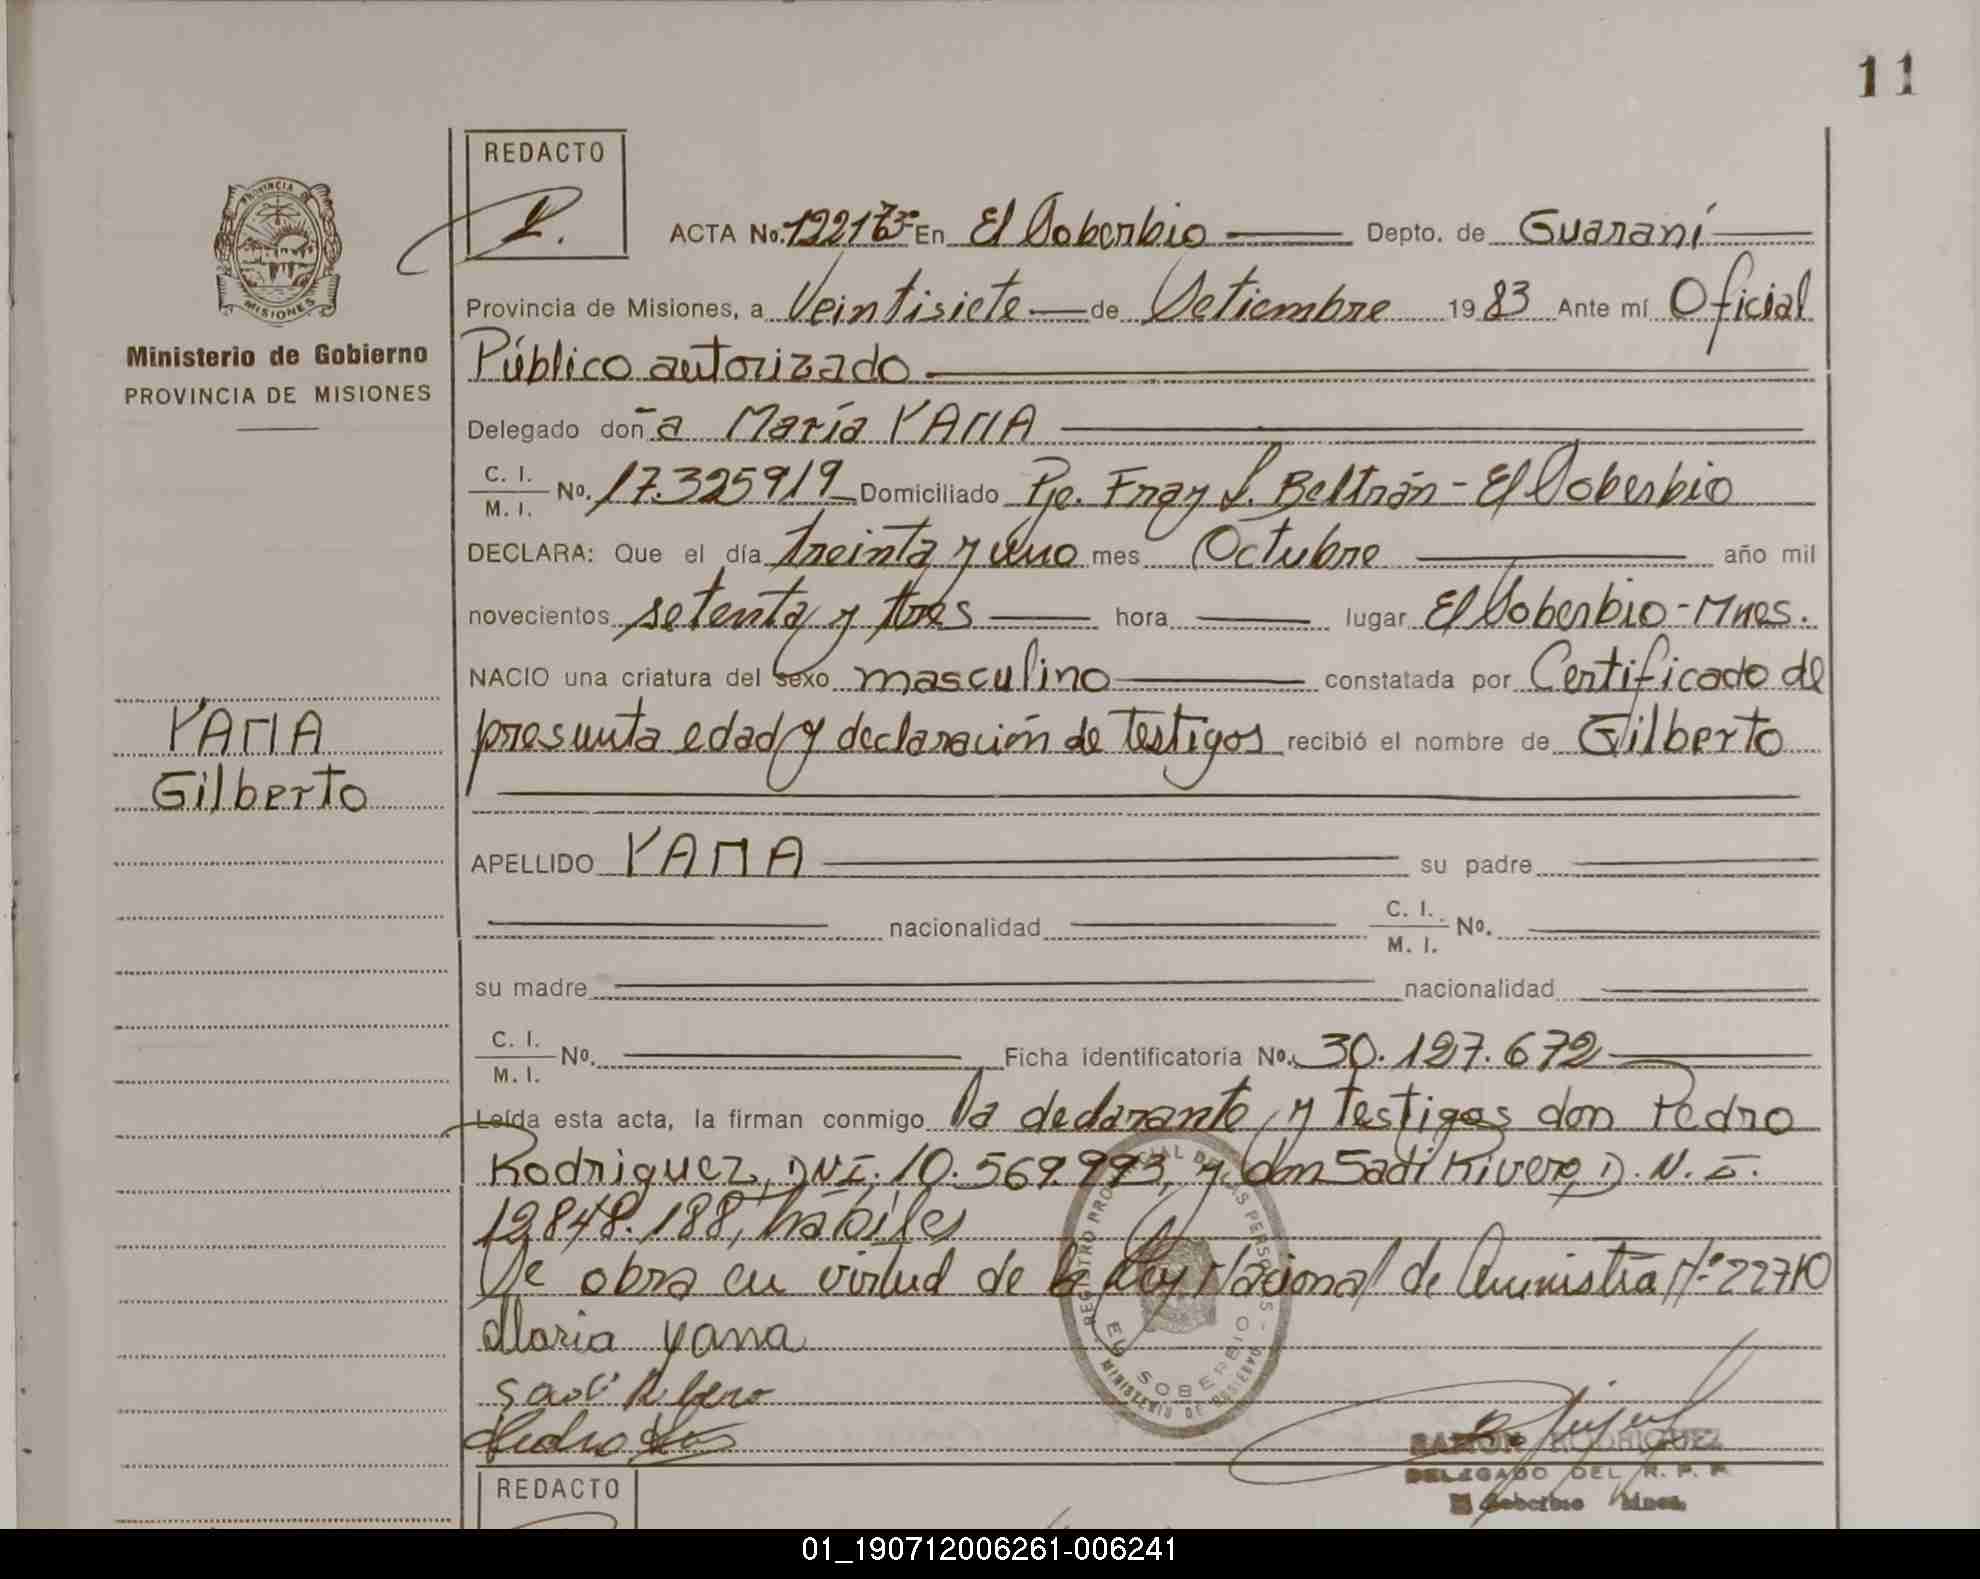 11
REDACTO
ACTA No. En El Soberbio Depto. de Guaraní
Provincia de Misiones, a Veintisiete de Setiembre 19 83 Ante mí Oficial
Público autorizado
Ministerio de Gobierno
PROVINCIA DE MISIONES
Delegado doñ a María YAMA
C. I.
M. I. No. 17.325919 Domiciliado Pje. Fray L. Beltrán - El Soberbio
DECLARA: Que el día treinta y uno mes Octubre año mil
novecientos setenta y tres hora lugar El Soberbio - Mnes.
NACIO una criatura del sexo masculino constatada por Certificado de
presunta edad y declaración de testigos recibió el nombre de Gilberto
YAMA
Gilberto
APELLIDO YAMA su padre
nacionalidad C. I.
M. I. No.
su madre nacionalidad
C. I.
M. I. No. Ficha identificatoria No. 30.127.672
Leída esta acta, la firman conmigo la declarante, y testigos don Pedro
Rodriguez, DNI. 10.569.993, y don Sadi Rivero, D.N.I.
12848.188, habiles
Se obra en virtud de la Ley Nacional de Amnistia Nº 22710
Maria yama
REGISTRO PROVINCIAL DE LAS PERSONAS
EL SOBERBIO
MINISTERIO DE GOBIERNO
RAMON RODRIGUEZ
DELEGADO DEL R. P. P.
El Soberbio Mnes.
REDACTO
01_190712006261-006241